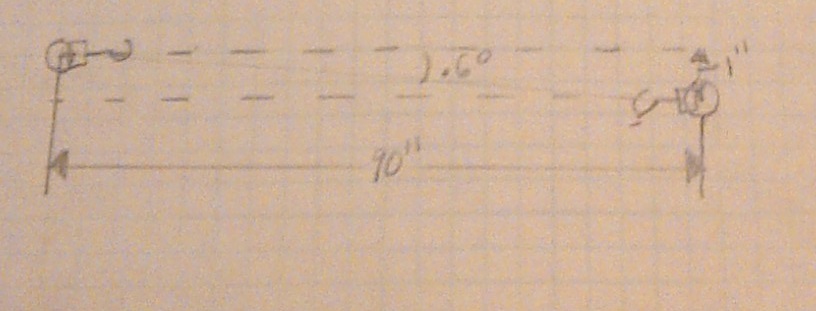 .6°
1"
90"